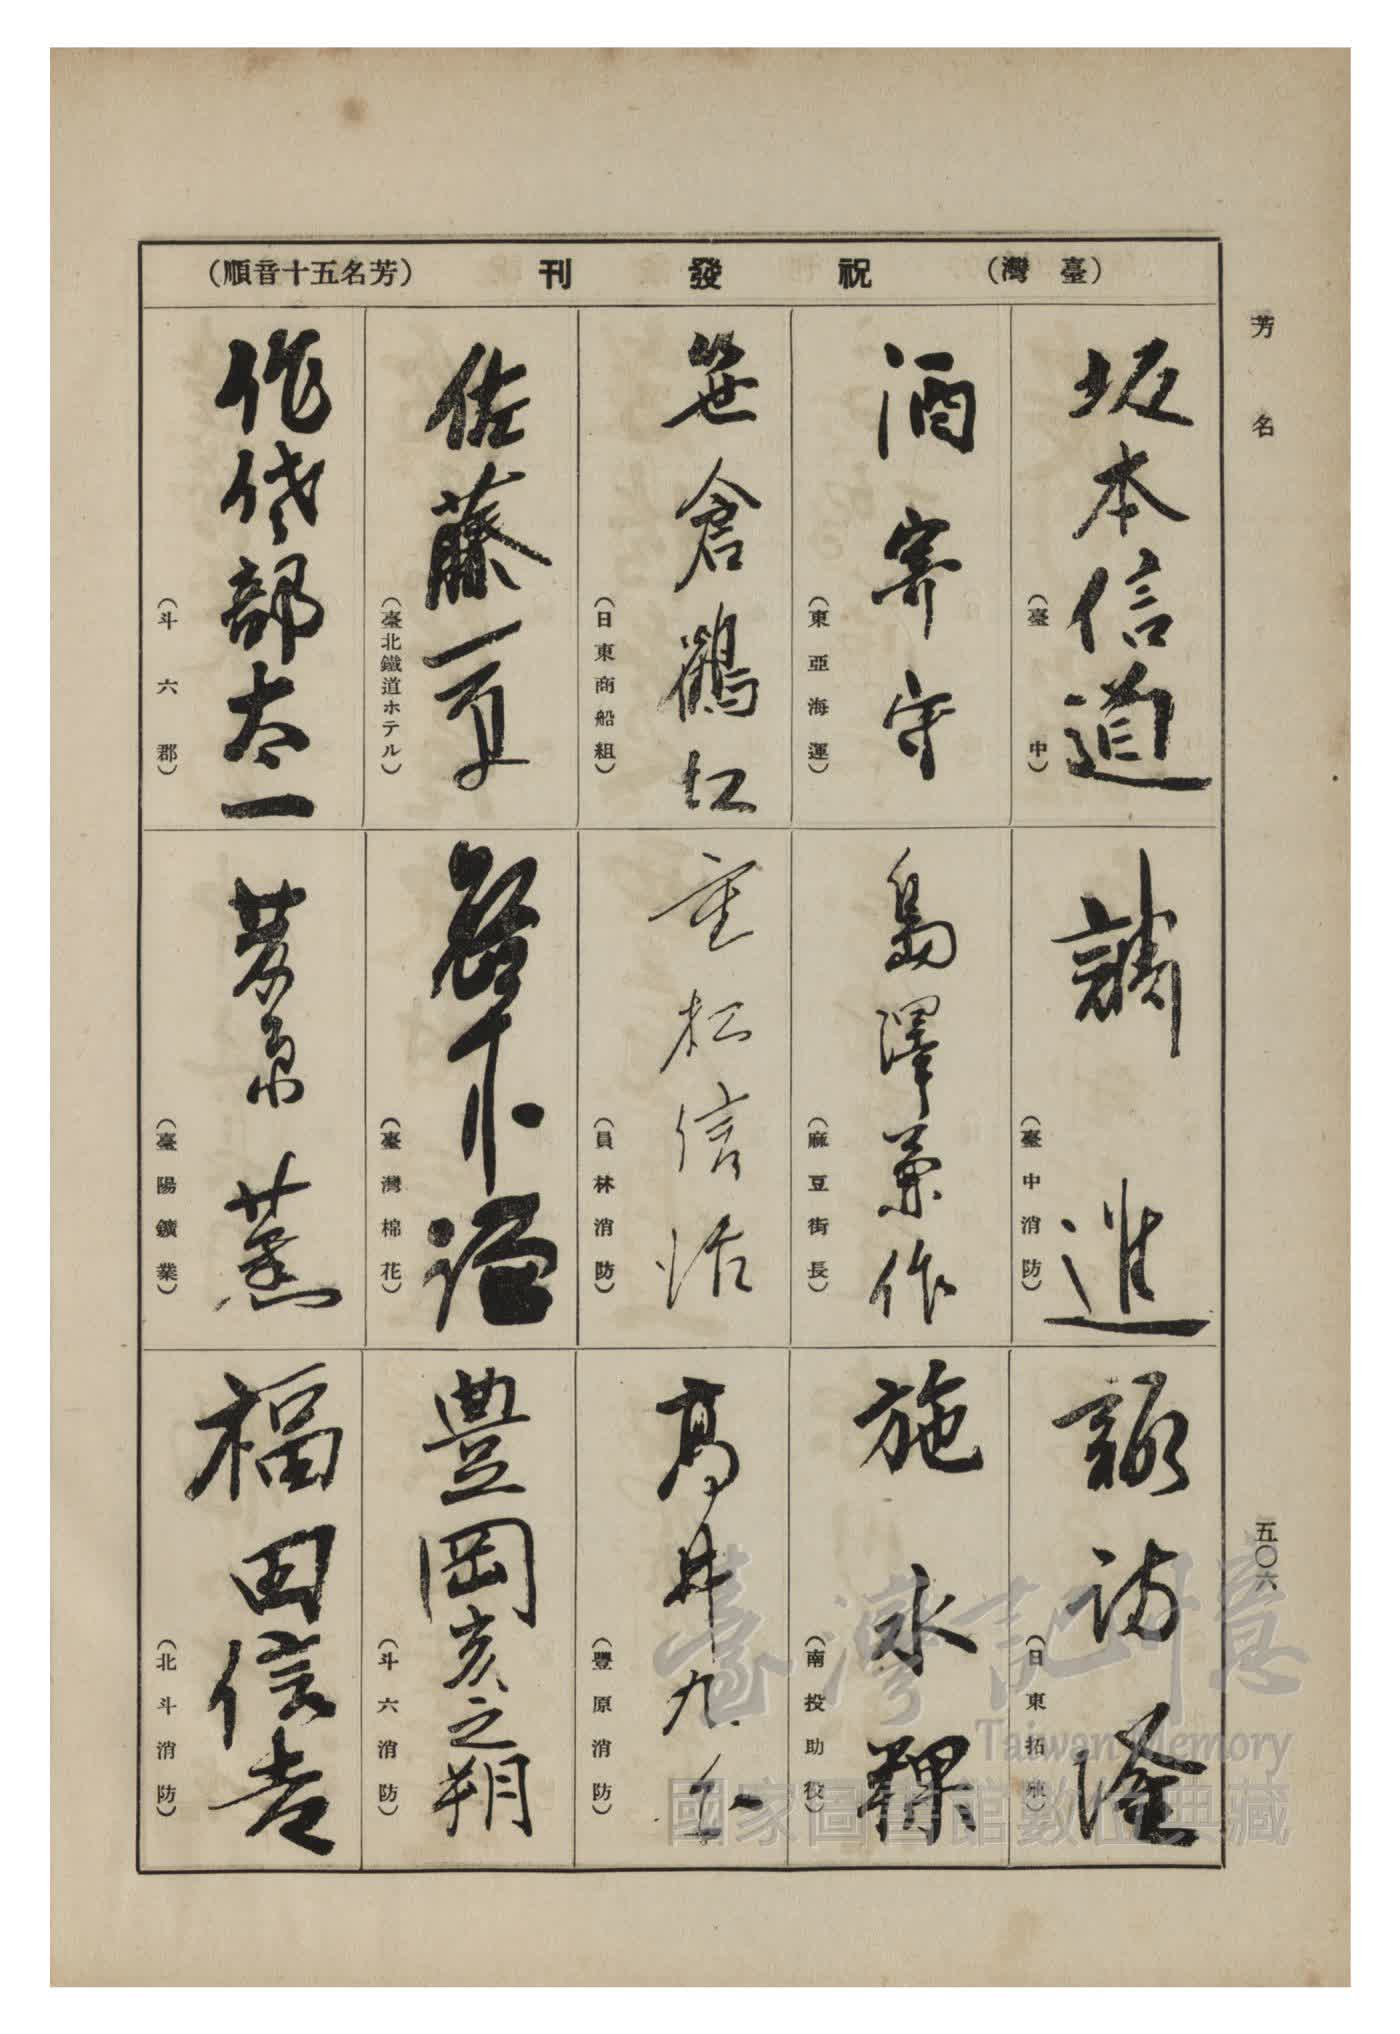 芳名
五〇六
（臺灣） 祝發刊 （芳名五十音順）
坂本信道
（臺中）
酒寄守
（東亞海運）
笹倉鶴江
（日東商船組）
佐藤一夏
（臺北鐵道ホテル）
作佐部太一
（斗六郡）
進
（臺中消防）
島澤兼作
（麻豆街長）
重松信治
（員林消防）
（臺灣棉花）
（臺陽鑛業）
諏訪隆
（日東拓殖）
施永稞
（南投助役）
高井九
（豐原消防）
豊岡亥之朔
（斗六消防）
福田信吉
（北斗消防）
臺灣記憶
Taiwan Memory
國家圖書館數位典藏